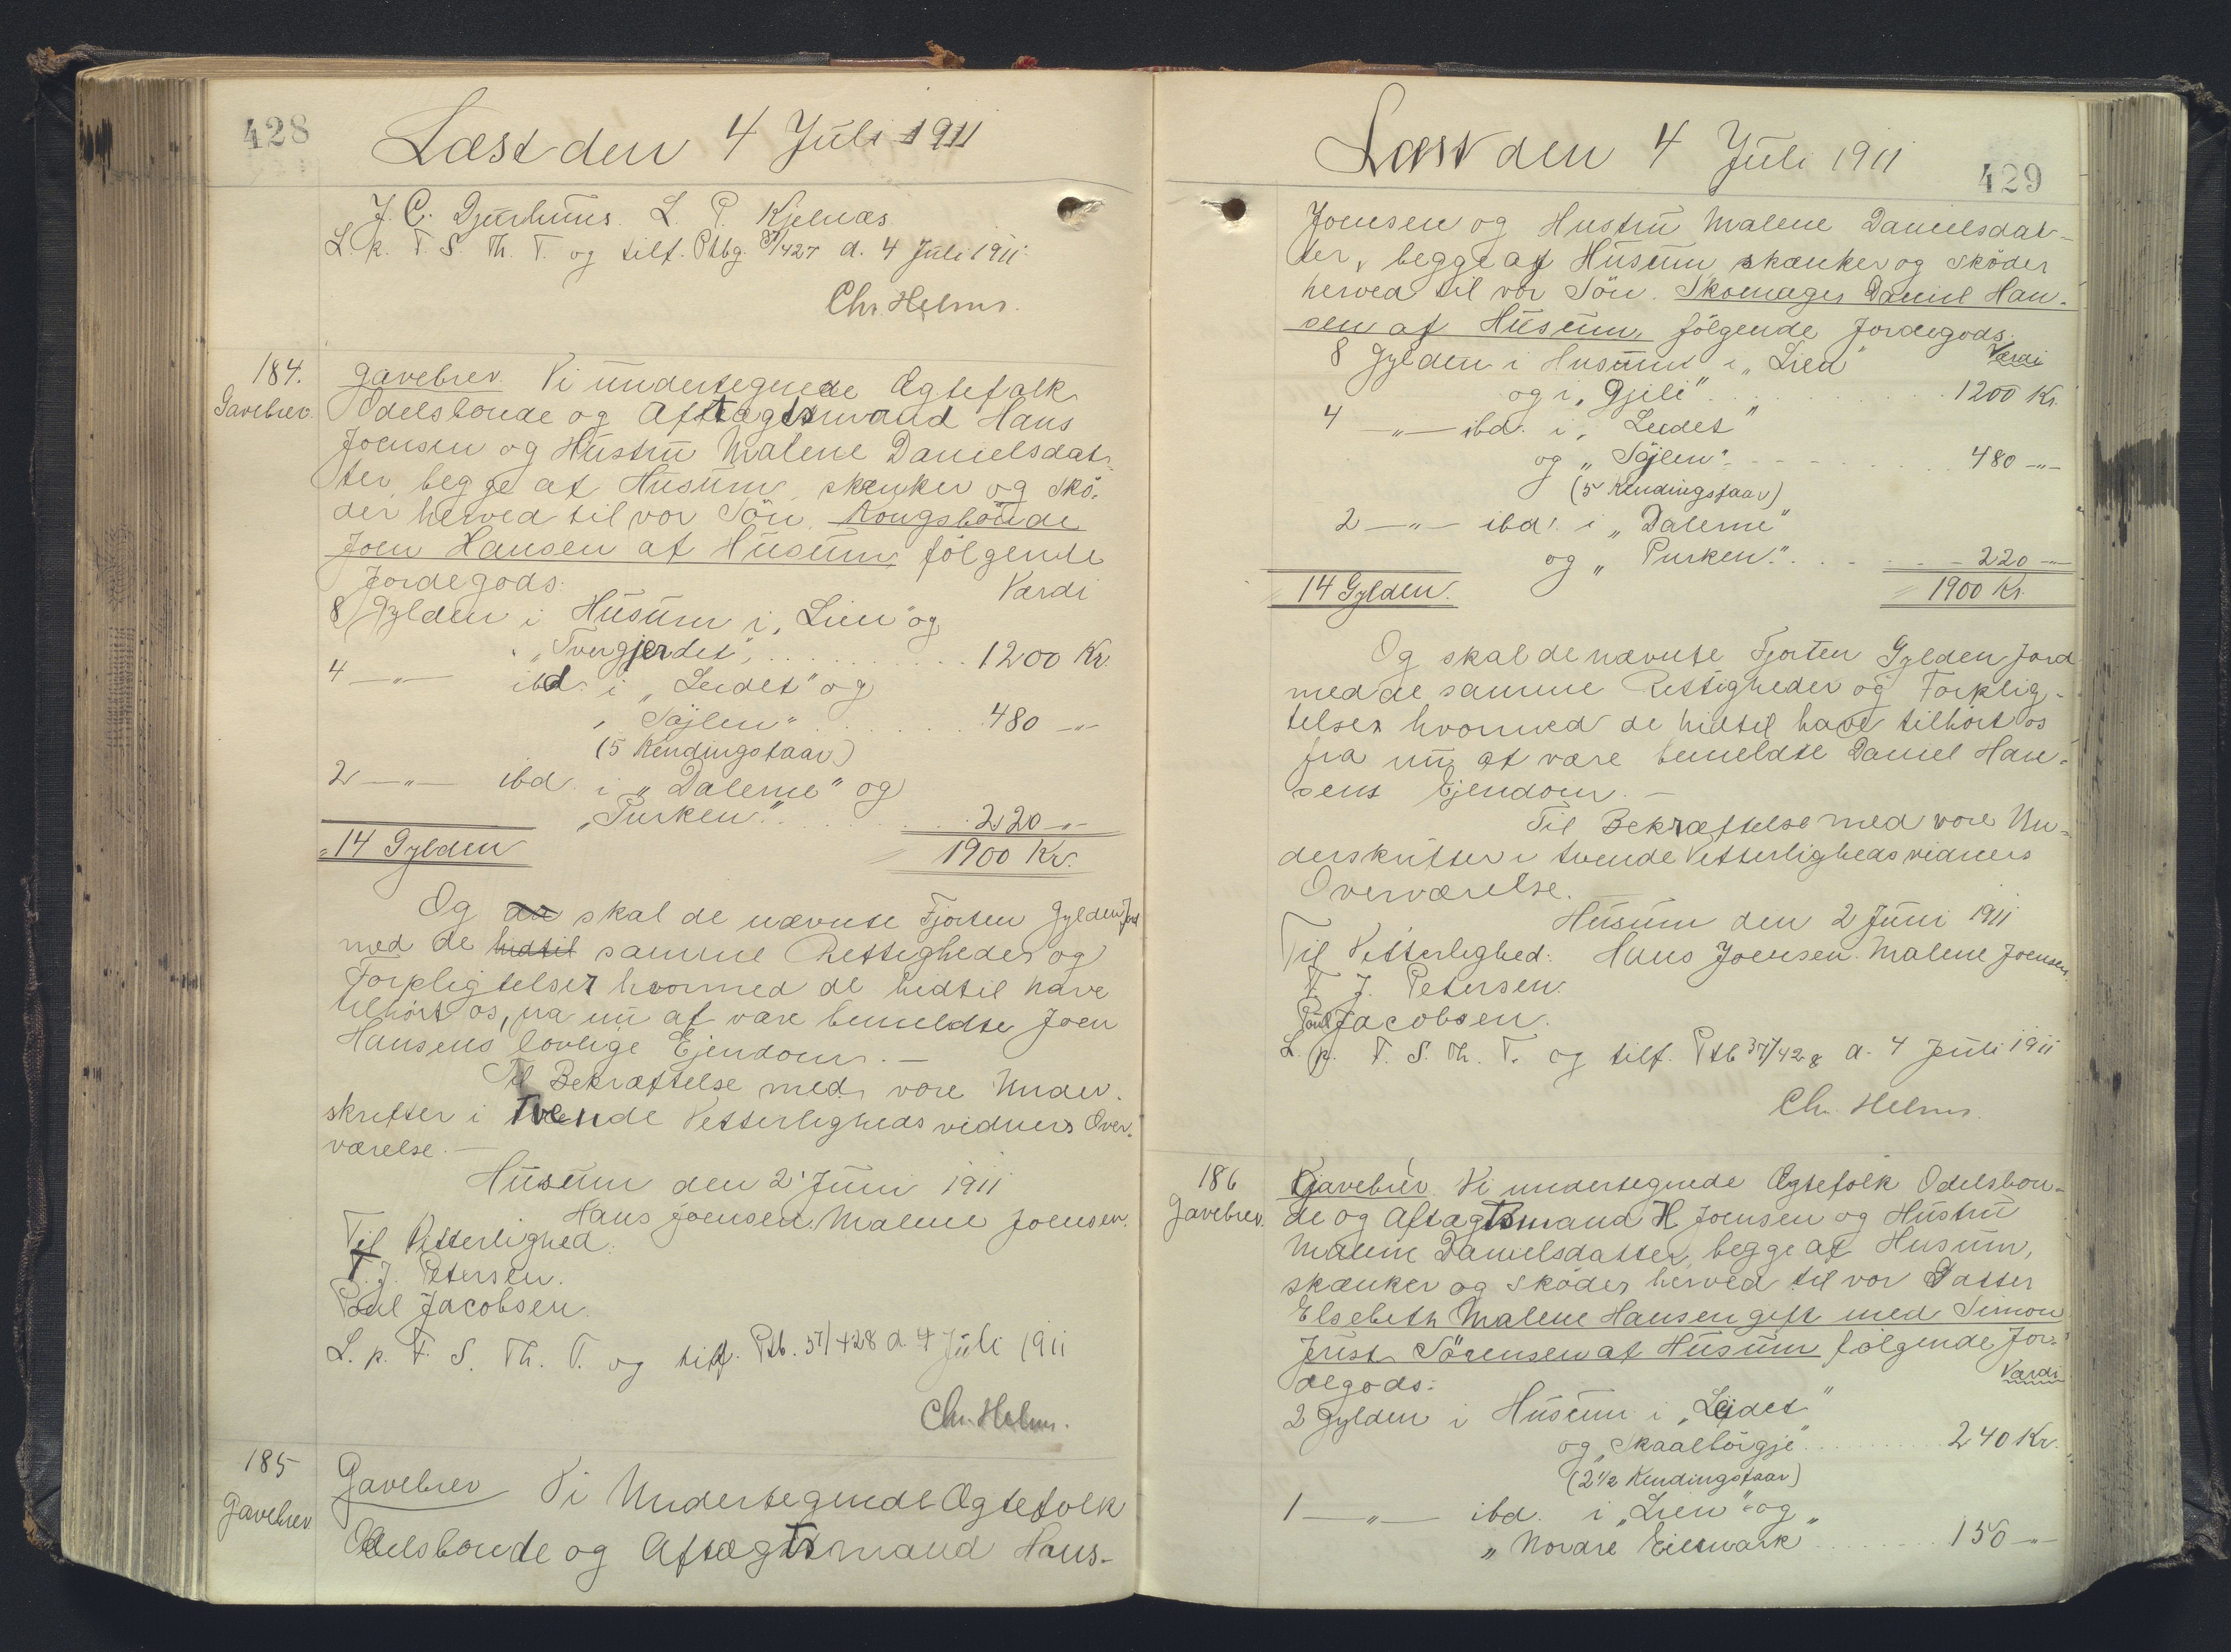 428
Læst den 4 Juli 1911
J. C. Djurhuus. L. P. Kjelnæs.
L. p. T. S. Th. T. og tilf. Ptbg. 37/427 d. 4 Juli 1911
Chr. Helms.
184.
Gavebrev.
Gavebrev. Vi undertegnede Ægtefolk
Odelsbonde og Aftægtsmand Hans
Joensen og Hustru Malene Danielsdat-
ter, begge af Husum, skænker og skö-
der herved til vor Sön, Kongsbonde
Joen Hansen af Husum fölgende
Jordegods: Værdi
8 Gylden i Husum i „Lien" og
„Tvergjerdet", . . . . . . . . . . 1200 Kr.
4 —„— ibd. i „Leidet" og
„Söjlen" . . . . . . . . 480 -„-
(5 Kendingsfaar)
2 —„— ibd. i „Dalerne" og
„Purken". . . . . . . . . 220 -„-
14 Gylden 1900 Kr.
Og an skal de nævnte Fjorten Gylden Jord
med de hidtil samme Rettigheder og
Forpligtelser hvormed de hidtil have
tilhört os, fra nu af være bemeldte Joen
Hansens lovlige Ejendom. —
Til Bekræftelse med vore Under-
skrifter i tvende Vetterligheds vidners Over-
værelse. —
Husum den 2' Juni 1911
Hans Joensen. Malene Joensen.
Til Vitterlighed:
T. J. Petersen.
Poul Jacobsen.
L. p. T. S. Th. T. og tilf. Ptb. 37/428 d. 4 Juli 1911
Chr. Helms.
185
Gavebrev
Gavebrev Vi Undertegnede Ægtefolk
Odelsbonde og Aftægtsmand Hans-
Læst den 4 Juli 1911
429
Joensen og Hustru Malene Danielsdat-
ter, begge af Husum, skænker og sköder
herved til vor Sön. Skomager Daniel Han-
sen af Husum, fölgende Jordegods:
Værdi
8 Gylden i Husum i „Lien"
og i „Gjili" . . . . . . . . . . . 1200 Kr.
4 —„— ibd. i „Leidet"
og „Söjlen" . . . . . . . . 480 -„-
(5 Kendingsfaar)
2 —„— ibd. i „Dalerne"
og „Purken". . . . . . . 220 -„-
14 Gylden. 1900 Kr.
Og skal de nævnte Fjorten Gylden Jord
med de samme Rettigheder og Forplig-
telser hvormed de hidtil have tilhört os
fra nu af være bemeldte Daniel Han-
sens Ejendom. —
Til Bekræftelse med vore Un-
derskrifter i tvende Vetterligheds vidners
Overværelse.
Husum den 2 Juni 1911
Til Vetterlighed: Hans Joensen. Malene Joensen.
T. J. Petersen.
Poul Jacobsen.
L. p. T. S. Th. T. og tilf. Ptb 37/428 d. 4 Juli 1911
Chr. Helms.
186
Gavebrev.
Gavebrev. Vi undertegnede Ægtefolk Odelsbon-
de og Aftægtsmand H Joensen og Hustru
Malene Danielsdatter, begge af Husum,
skænker og sköder herved til vor Datter
Elsebeth Malene Hansen gift med Simon
Just Sörensen af Husum fölgende Jor-
degods: Værdi
2 Gylden i Husum i „Leidet"
og „Skaalbörgje" . . . . . . . . . 240 Kr.
(2 1/2 Kendingsfaar)
1 —„— ibd. i „Lien" og
„Nordre Eiermark" . . . . . . . 150 -„-